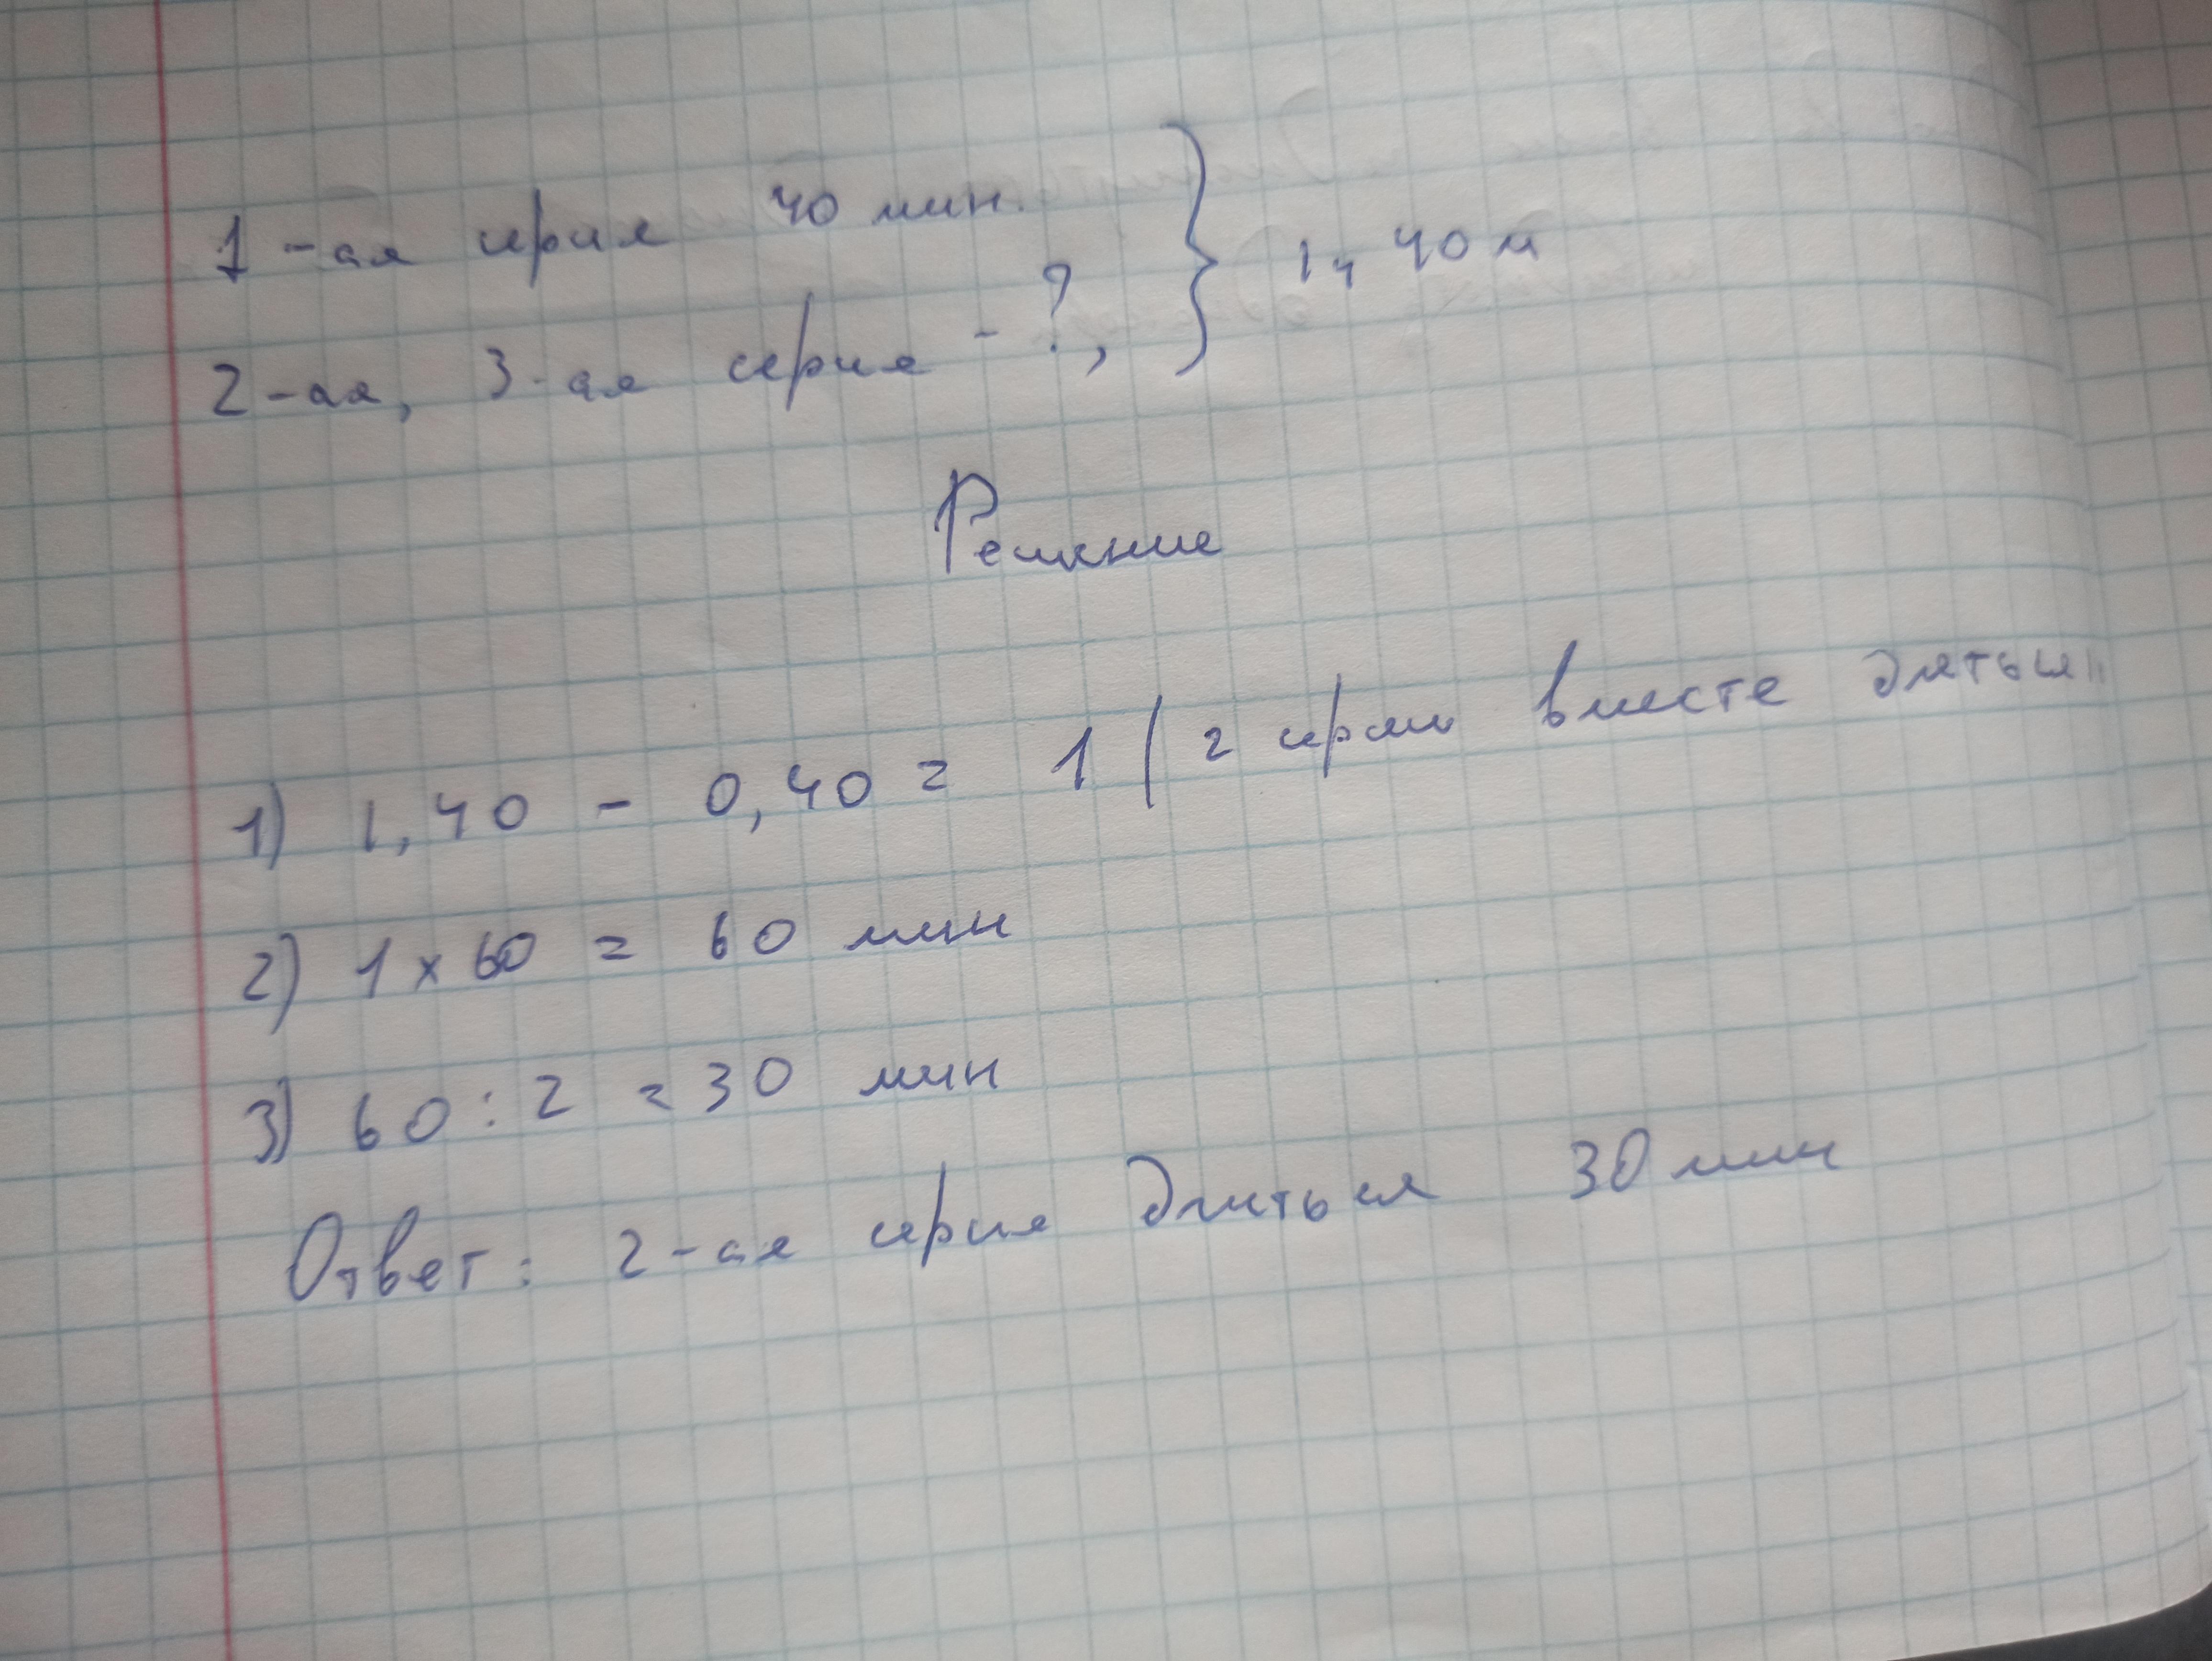 1-ая серия 40 мин.
2-ая, 3-ая серия - ?, } 1ч 40 м
Решение
1) 1,40 - 0,40 = 1 ( 2 серии вместе длиться
2) 1 x 60 = 60 мин
3) 60 : 2 = 30 мин
Ответ: 2-ая серия длиться 30 мин